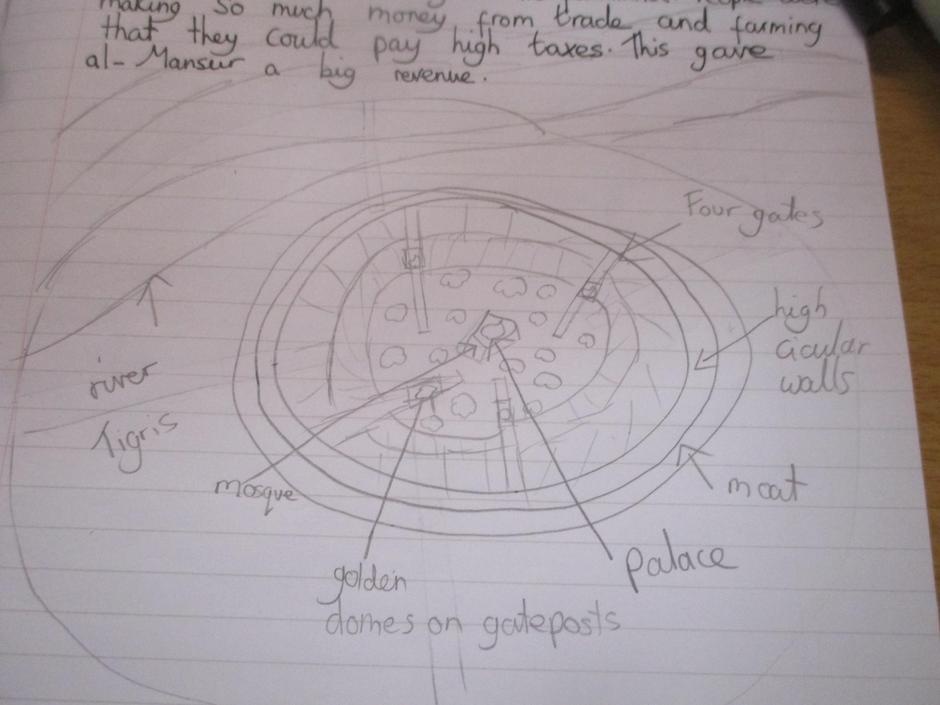 making so much money from trade and farming
that they could pay high taxes. This gave
al-Mansur a big revenue.
Four gates
high
cicular
walls
river
Tigris
moat
mosque
palace
golden
domes on gateposts